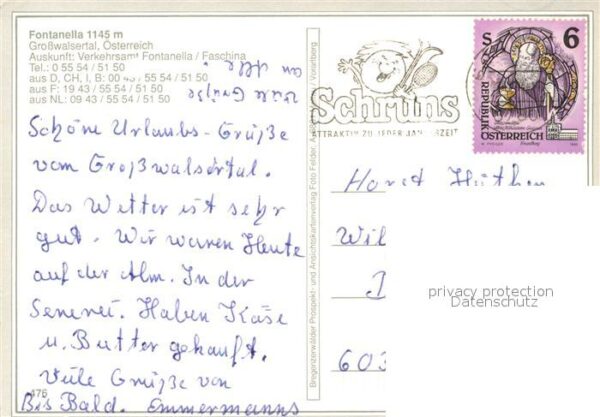 Fontanella 1145 m
Großwalsertal, Österreich
Auskunft: Verkehrsamt Fontanella / Faschina
Tel.: 0 55 54 / 51 50
aus D, CH, I, B: 00 43 55 54 / 51 50
aus F: 19 43 / 55 54 / 51 50
aus NL: 09 43 / 55 54 / 51 50
Schöne Urlaubs-Grüße
vom Großwalsertal.
Das Wetter ist sehr
gut. Wir waren Heute
auf der Alm. In der
Senerei. Haben Käse
u. Butter gekauft.
Viele Grüße von
476
Bis Bald. Emmermanns
Bregenzerwälder Prospekt- und Ansichtskartenverlag Foto Felder, Vorarlberg
Schruns
ATTRAKTIV ZU JEDER JAHRESZEIT
S 6
REPUBLIK
ÖSTERREICH
Horst Hüthen
Wil
603
privacy protection
Datenschutz